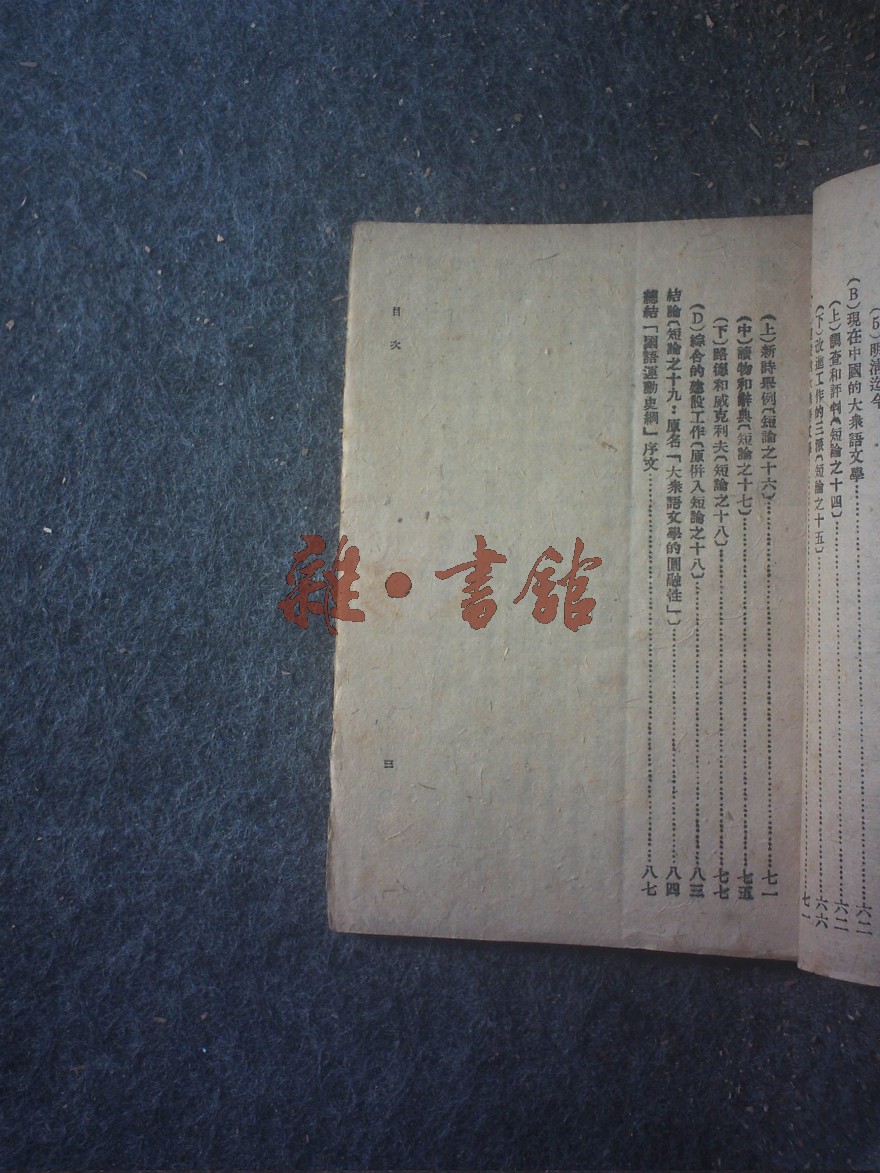 (5)明清迄今
(B)現在中國的大衆語文學……六二
(上)調查和評判〔短論之十四〕……六二
(下)改進工作的三派〔短論之十五〕……六六
七一
(上)新時舉例〔短論之十六〕……七一
(中)讀物和辭典〔短論之十七〕……七五
(下)路德和威克利夫〔短論之十八〕……七七
(D)綜合的建設工作〔原併入短論之十八〕……八三
結論〔短論之十九:原名「大衆語文學的圓融性」〕……八四
總結「國語運動史綱」序文……八七
目次
三
雜·書館